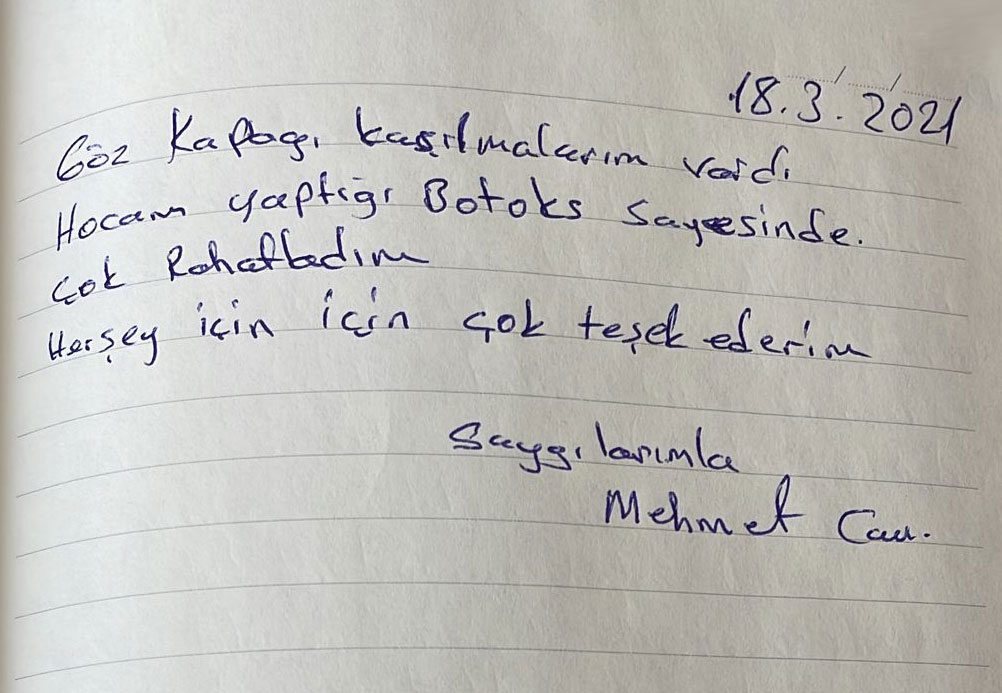 18.3.2021
Göz Kapağı kasılmalarım vardı
Hocam yaptığı Botoks sayesinde.
Çok Rahatladım
Herşey için için çok teşek ederim
Saygılarımla
Mehmet Can.